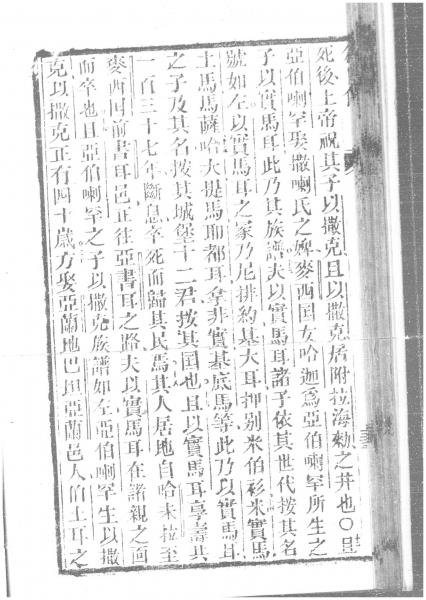 死後上帝祝其子以撒克且以撒克居附拉海勑之井也〇且
亞伯喇罕娶撒喇氏之婢麥西国女哈迦爲亞伯喇罕所生之
子以實馬耳此乃其族譜夫以實馬耳諸子依其世代按其名
號如左以實馬耳之冢乃尼排約基大耳押別米伯衫米實馬
土馬馬薩哈大提馬耶都耳拿非實基底馬等此乃以實馬耳
之子及其名按其城堡十二君按其国也且以實馬耳享壽共
一百三十七年斷息卒死而歸其民焉其人居地自哈未拉至
麥西国前書耳邑正往亞書耳之路夫以實馬耳在諸親之面
而卒也且亞伯喇罕之子以撒克族譜如左亞伯喇罕生以撒
克以撒克正有四十歲方娶亞蘭地巴坦亞蘭邑人伯土耳之